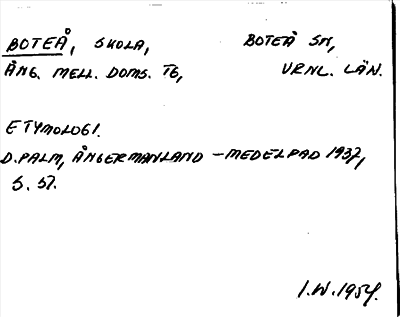 BOTEÅ, SKOLA, BOTEÅ SN,
ÅNG. MELL. DOMS. TG, VRNL. LÄN.
ETYMOLOGI.
D. PALM, ÅNGERMANLAND – MEDELPAD 1937,
S. 57.
I.W. 1954.